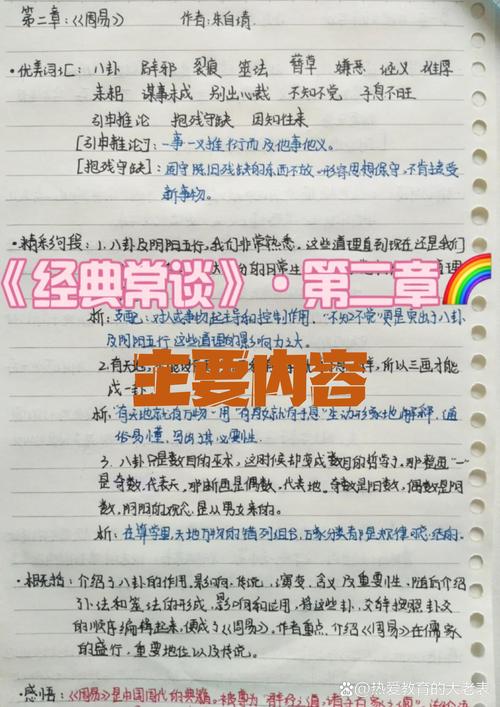 第二章:《周易》 作者:朱自清
·优美词汇: 八卦 辟邪 裂痕 筮法 蓍草 嫌恶 涵义 雄厚
未招 谋事未成 别出心裁 不知不觉 子息不旺
引申推论 抱残守缺 因知往来
[引申推论]:一事一义推衍而及他事他义。
[抱残守缺]:固守陈旧残缺的东西不放。形容思想保守,不肯接受
新事物。
·精彩句段:1.八卦及阴阳五行,我们非常熟悉。这些道理直到现在还是我们
的日常生 道理
《经典常谈》·第二章
析:支配:对人或事物起主导和控制作用。"不知不觉"更是突出了八卦
及阴阳五行这些道理的影响力之大。
2.有天地 样,所以三画才能
主要内容
成一卦。
析:"有天地就有万物"用"有母就有子息"生动形象地解释,通
俗易懂,写出其必要性。
3.八卦只是数目的巫术,这时候却变成数目的哲学了。那整画"一"
是奇数,代表天,那断画是偶数,代表地。奇数是阳数,偶数是阴
数,阴阳的观念,是从男女来的。
析:在算学里,天地万物的错列组合,万象分类着,是规律呢,结的。
·概括:介绍了八卦的作用、影响、传说、演变、含义及重要性,随后介绍
卦法和筮法的形成、影响和运用,将这些卦、爻辞按照卦爻
的顺序编辑起来,便成了《周易》。作者重点介绍《周易》在儒家
的盛行、重要地位以及传说。
·感悟:《周易》是中国周代的典籍,被尊为"群经之首,诸子百家之源",
@热爱教育的大老表